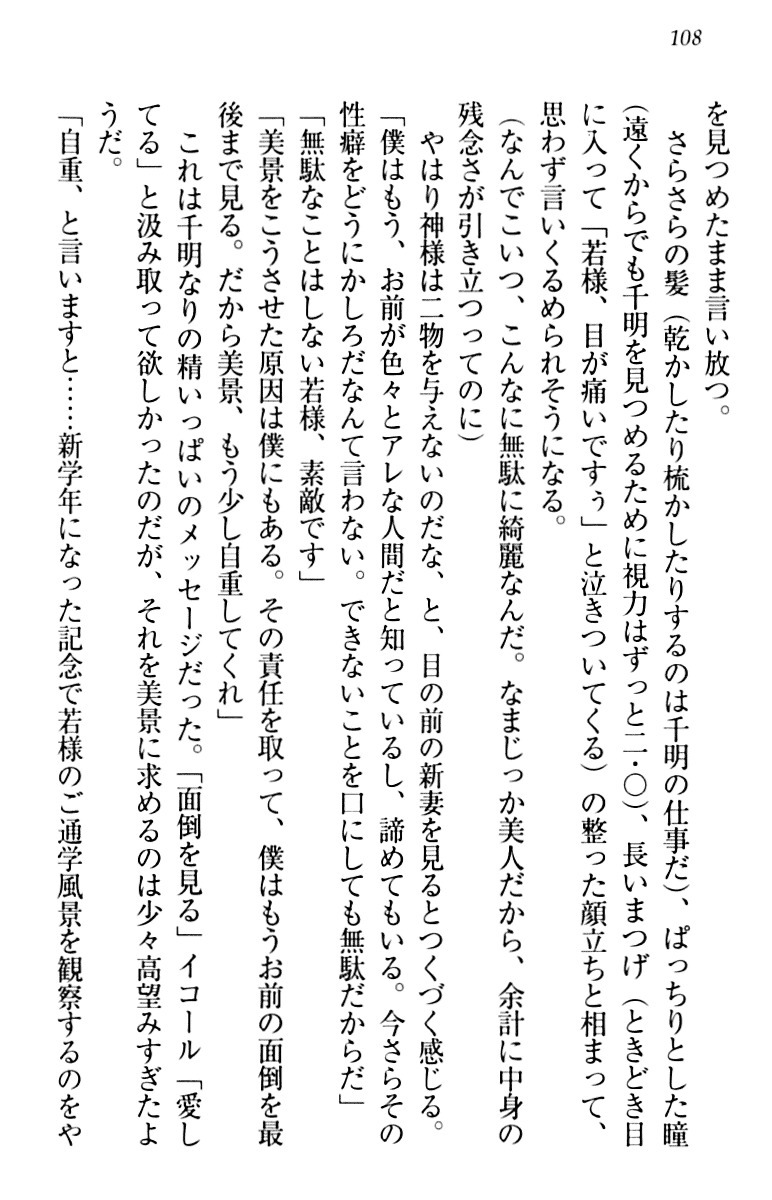 108
を見つめたまま言い放つ。
　さらさらの髪（乾かしたり梳かしたりするのは千明の仕事だ）、ぱっちりとした瞳
（遠くからでも千明を見つめるために視力はずっと二・〇）、長いまつげ（ときどき目
に入って「若様、目が痛いですぅ」と泣きついてくる）の整った顔立ちと相まって、
思わず言いくるめられそうになる。
（なんでこいつ、こんなに無駄に綺麗なんだ。なまじっか美人だから、余計に中身の
残念さが引き立つってのに）
　やはり神様は二物を与えないのだな、と、目の前の新妻を見るとつくづく感じる。
「僕はもう、お前が色々とアレな人間だと知っているし、諦めてもいる。今さらその
性癖をどうにかしろだなんて言わない。できないことを口にしても無駄だからだ」
「無駄なことはしない若様、素敵です」
「美景をこうさせた原因は僕にもある。その責任を取って、僕はもうお前の面倒を最
後まで見る。だから美景、もう少し自重してくれ」
　これは千明なりの精いっぱいのメッセージだった。「面倒を見る」イコール「愛し
てる」と汲み取って欲しかったのだが、それを美景に求めるのは少々高望みすぎたよ
うだ。
「自重、と言いますと……新学年になった記念で若様のご通学風景を観察するのをや